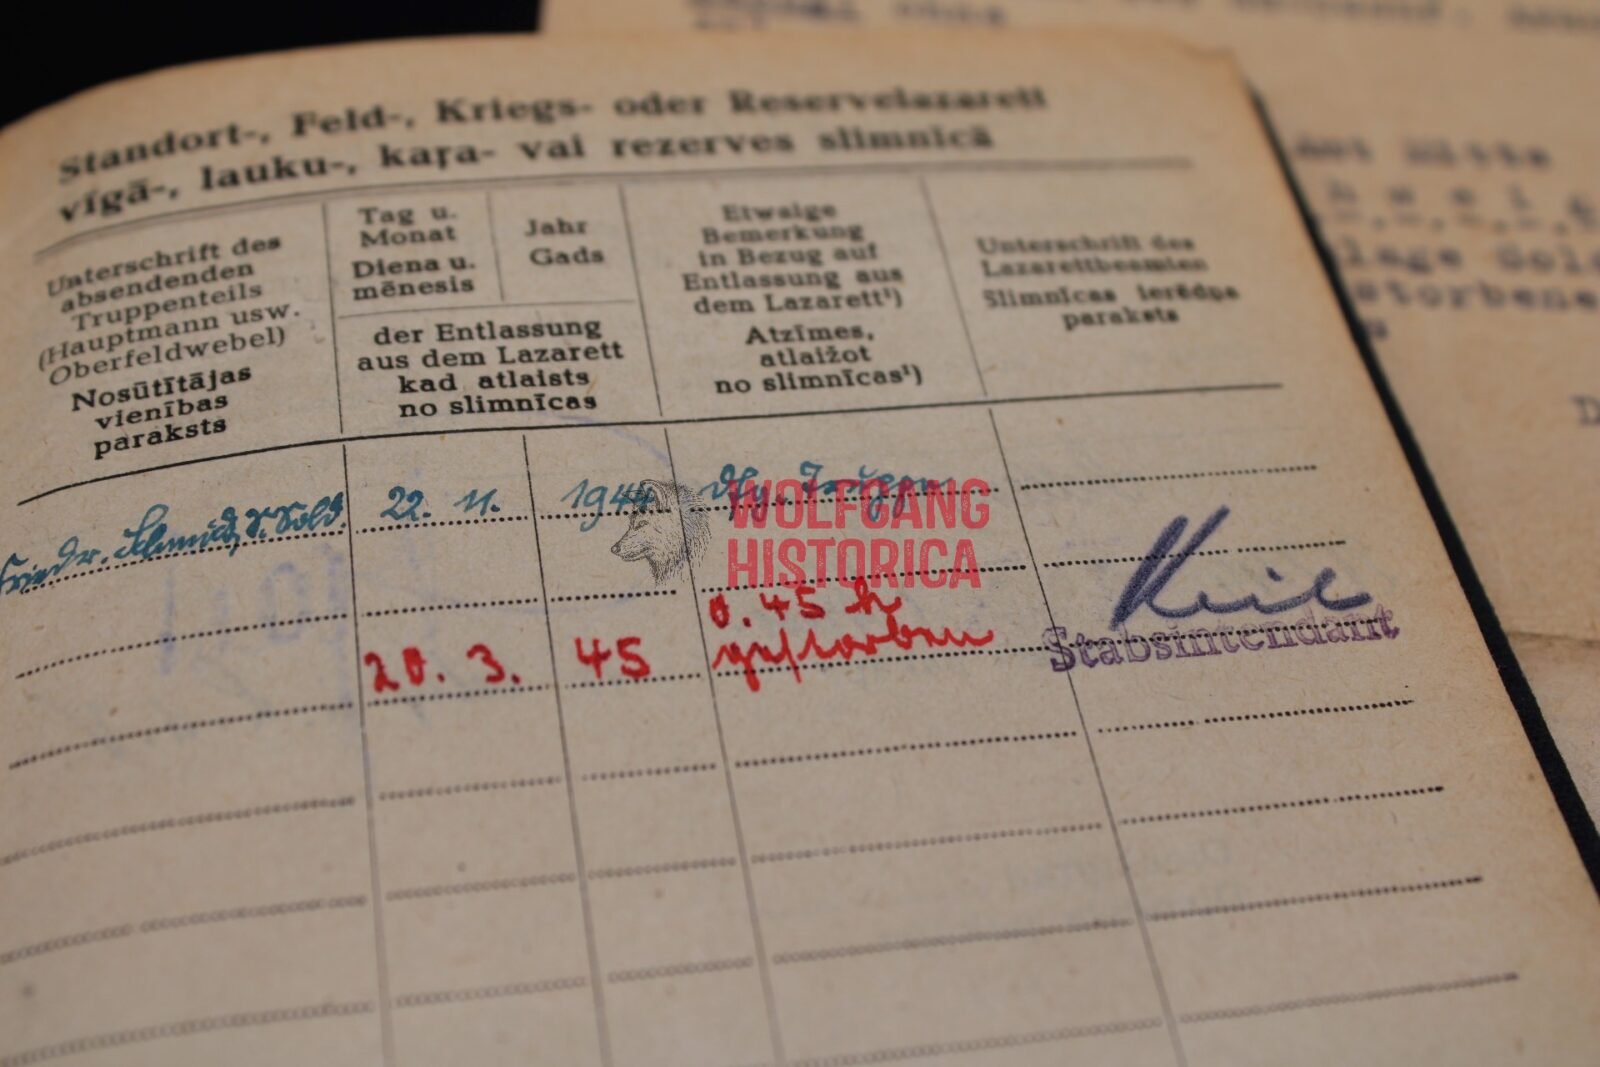 Standort-, Feld-, Kriegs- oder Reservelazarett
vīgā-, lauku-, kaŗa- vai rezerves slimnīcā
Unterschrift des
absendenden
Truppenteils
(Hauptmann usw.
Oberfeldwebel)
Nosūtītājas
vienības
paraksts
Tag u.
Monat
Diena u.
mēnesis
Jahr
Gads
der Entlassung
aus dem Lazarett
kad atlaists
no slimnīcas
Etwaige
Bemerkung
in Bezug auf
Entlassung aus
dem Lazarett¹)
Atzīmes,
atlaižot
no slimnīcas¹)
Unterschrift des
Lazarettbeamten
Slimnīcas ierēdņa
paraksts
Friedr. Schmidt
22. 11.
1944
WOLFGANG
HISTORICA
20. 3.
45
0.45 h
gestorben
Keil
Stabsintendant